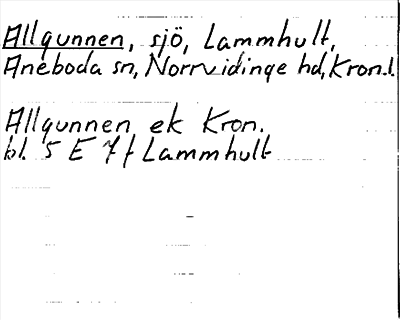 Allgunnen, sjö, Lammhult,
Aneboda sn, Norrvidinge hd, Kron.l.
Allgunnen ek Kron.
bl. 5 E 7f Lammhult